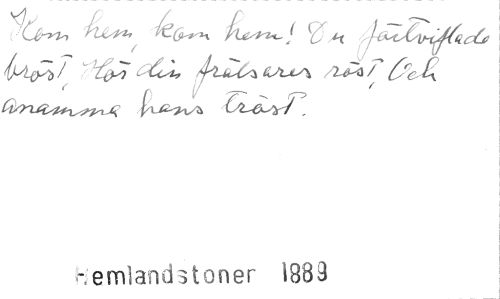 Kom hem, kom hem! Du förtviflade
bröst, Hör din frälsares röst, Och
anamma hans tröst.
Hemlandstoner 1889